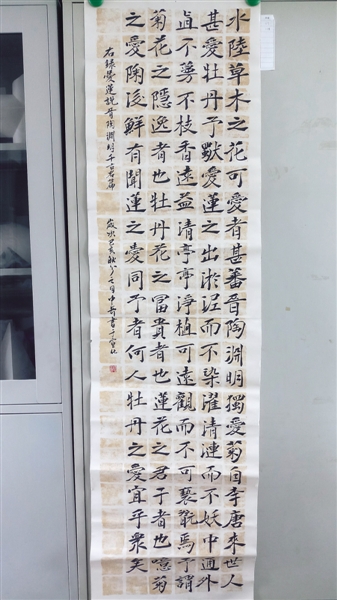 水陸草木之花可愛者甚蕃晉陶淵明獨愛菊自李唐來世人
甚愛牡丹予獨愛蓮之出淤泥而不染濯清漣而不妖中通外
直不蔓不枝香遠益清亭亭淨植可遠觀而不可褻翫焉予謂
菊花之隱逸者也牡丹花之冨貴者也蓮花之君子者也噫菊
之愛陶後鮮有聞蓮之愛同予者何人牡丹之愛宜乎衆矣
右録愛蓮説晉陶淵明千古名篇 歲次己亥秋月中書于